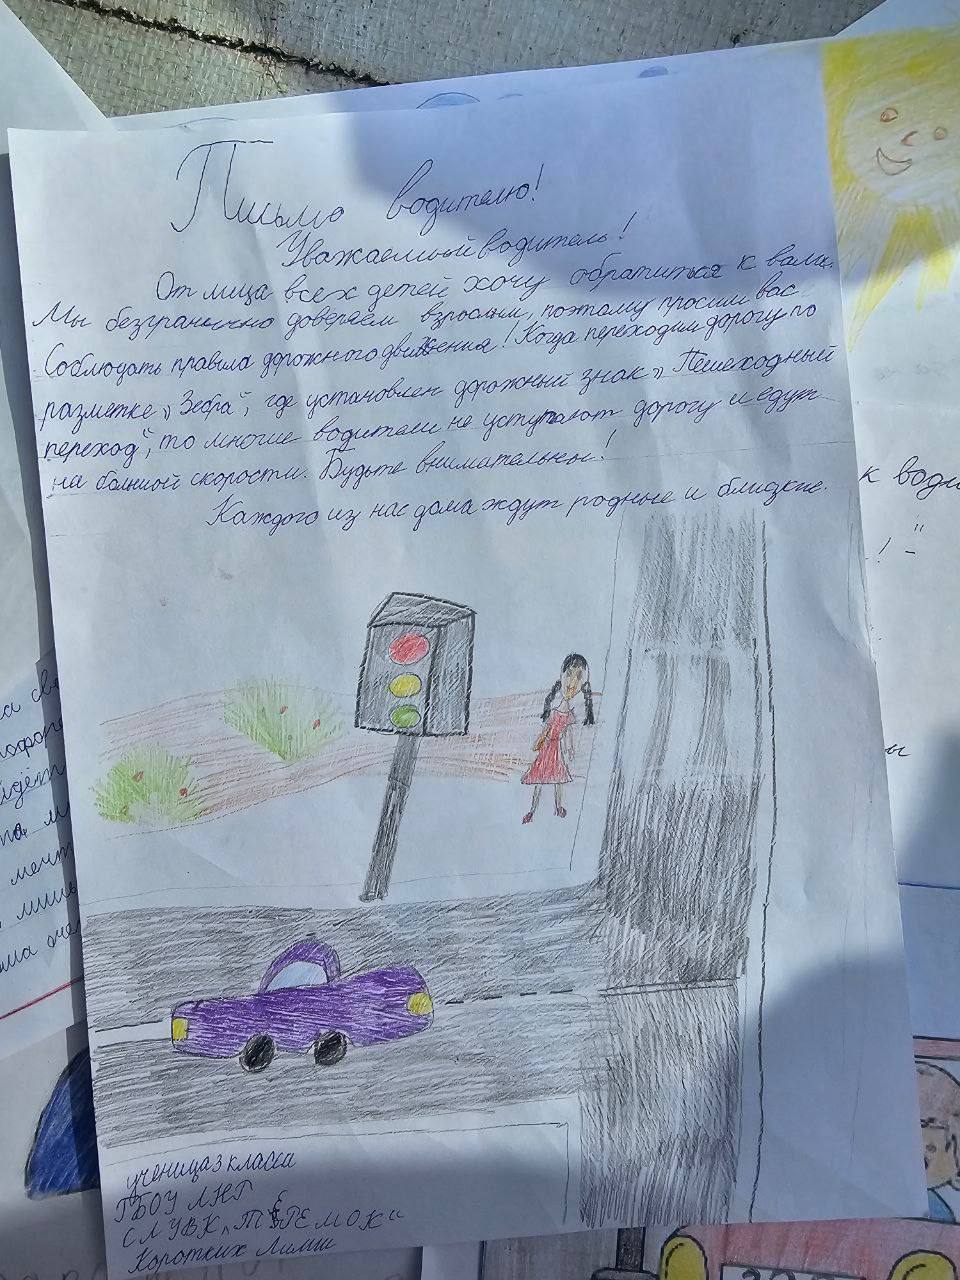 Письмо водителю!
Уважаемый водитель!
От лица всех детей хочу обратиться к вам.
Мы безгранично доверяем взрослым, поэтому просим вас
Соблюдать правила дорожного движения! Когда переходим дорогу по
разметке „Зебра“, где установлен дорожный знак „Пешеходный
переход“, то многие водители не уступают дорогу и едут
на большой скорости. Будьте внимательны!
Каждого из нас дома ждут родные и близкие.
к води
! -"
ы
а
йдёт
мечт
лишь
ученица 3 класса
ГБОУ ЛНР
СЛУВК „ТЕРЕМОК“
Коротких